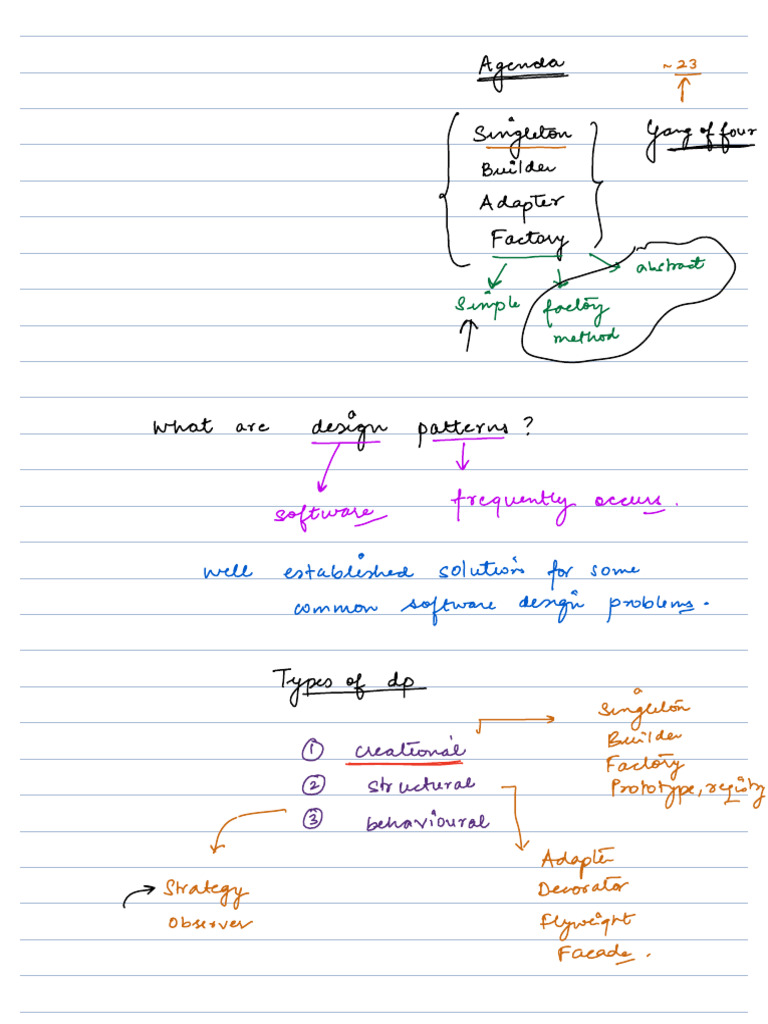 Agenda
~23
Singleton
Gang of four
Builder
Adapter
Factory
abstract
Simple
factory
method
What are design patterns?
software
frequently occurs.
well established solutions for some
common software design problems.
Types of dp
Singleton
① creational
Builder
Factory
② structural
Prototype, registry
③ behavioural
Adapter
Strategy
Decorator
Observer
Flyweight
Facade.